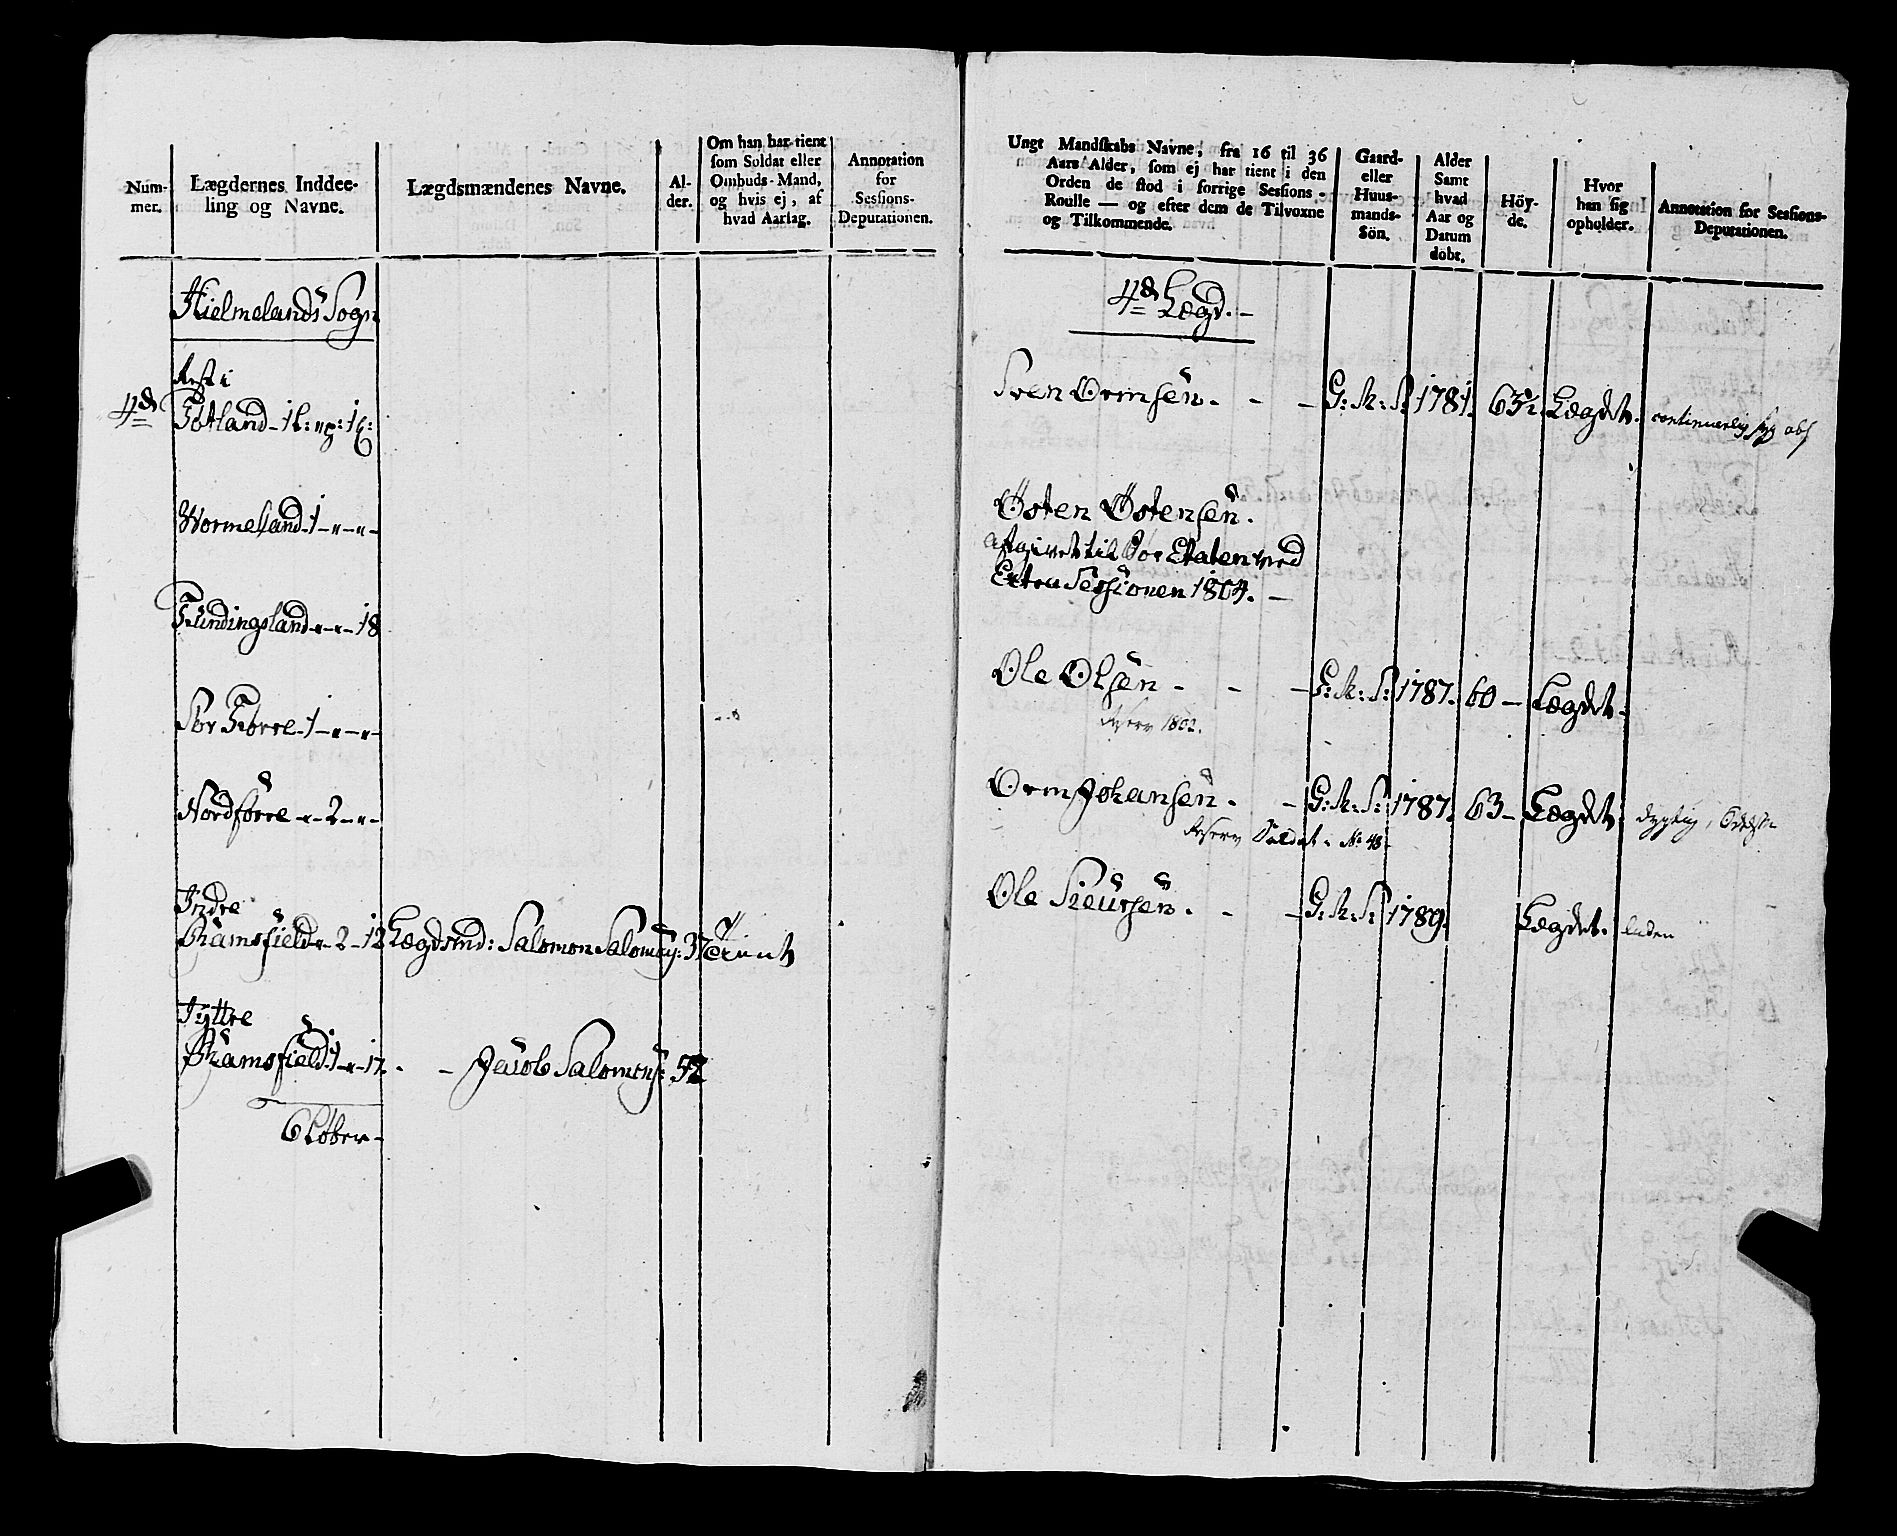 Num-
mer.
Lægdernes Inddee-
ling og Navne.
Lægdsmændenes Navne.
Al-
der.
Om han har tient
som Soldat eller
Ombuds-Mand,
og hvis ej, af
hvad Aarsag.
Annotation
for
Sessions-
Deputationen.
Hielmelands Sogn
Rest i
4de
Wormeland - 1 - " - " -
Fundingsland - " - " - 18
Nordförre - " - 2 - " -
Indre
Ramsfield - " - 2 - 12 Lægdsmd: Salomon Salomons: 37 Tient
Jyttre
Ramsfield - 1 - " - 17. - - Jacob Salomons: 52
6 Løber -
Ungt Mandskabs Navne, fra 16 til 36
Aars Alder, som ej har tient i den
Orden de stod i forrige Sessions-
Roulle — og efter dem de Tilvoxne
og Tilkommende.
Gaard-
eller
Huus-
mands-
Sön.
Alder
Samt
hvad
Aar og
Datum
döbt.
Höy-
de.
Hvor
han sig
opholder.
Annotation for Sessions-
Deputationen.
4de Lægd. -
Sven Ormsen. - - G: M: S: 1781. 63½. Lægdet. continuerlig syg
Østen Østensen.
afgivet til Søe Etaten ved
Extra Sessionen 1804. -
Ole Olsen - - - G: M: S: 1787. 60 - Lægdet -
Reserv 1802.
Orm Johansen. - G: M: S: 1787. 63 - Lægdet. dygtig,
Reserv Soldat No 48
Ole Sieursen. - - G: M: S: 1789. Lægdet. liden